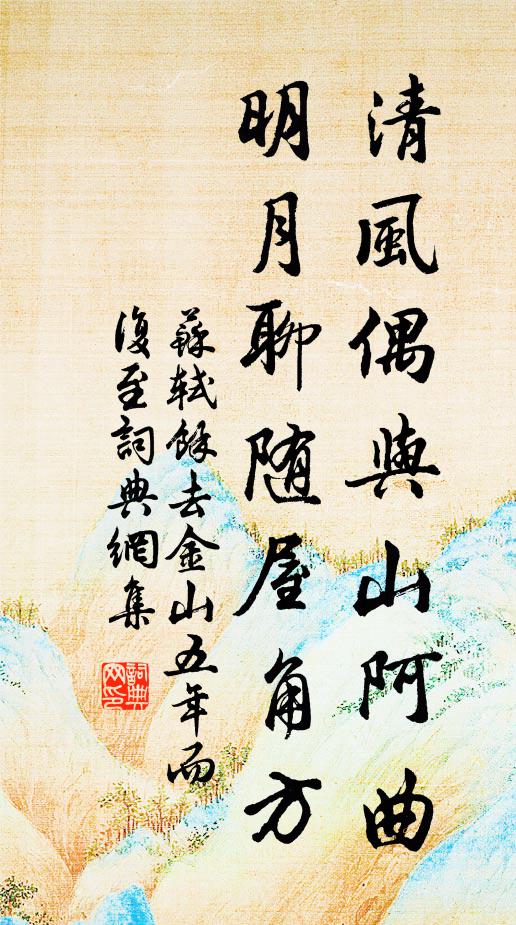 清風偶與山阿曲
明月聊随屋角方
蘇軾餘去金山五年而
復至詞典網集
詞典
网印